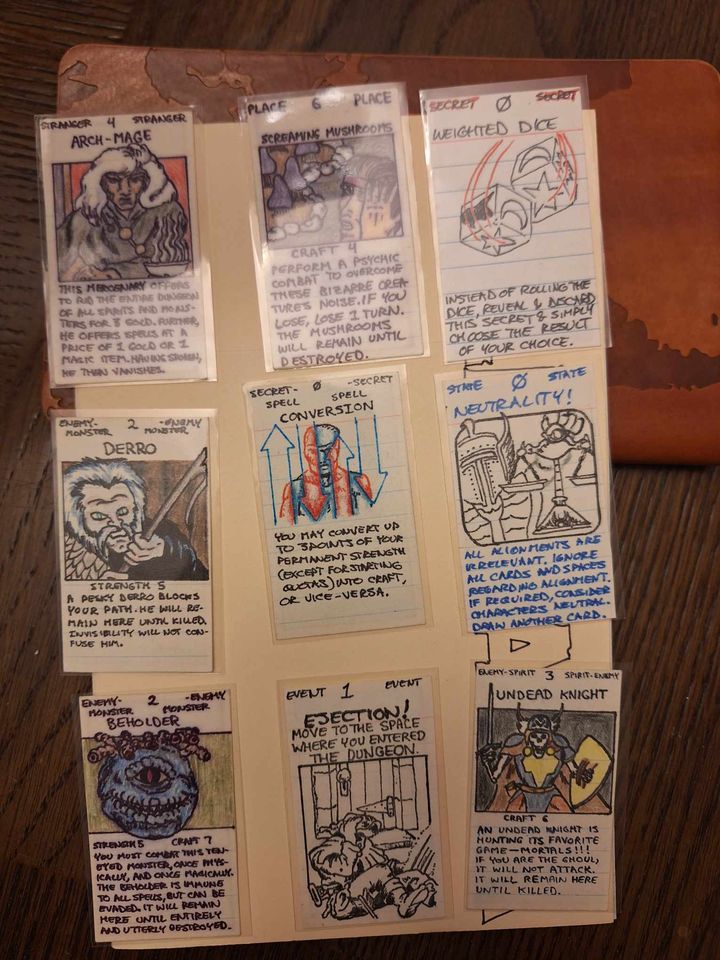 STRANGER 4 STRANGER
ARCH-MAGE
THIS MERCENARY OFFERS
TO RID THE ENTIRE DUNGEON
OF ALL SPIRITS AND MONS-
TERS FOR 8 GOLD. FURTHER,
HE OFFERS SPELLS AT A
PRICE OF 1 GOLD OR 1
MAGIC ITEM. HAVING SPOKEN,
HE THEN VANISHES.
PLACE 6 PLACE
SCREAMING MUSHROOMS
CRAFT 4
PERFORM A PSYCHIC
COMBAT TO OVERCOME
THESE BIZARRE CREA
TURE'S NOISE. IF YOU
LOSE, LOSE 1 TURN.
THE MUSHROOMS
WILL REMAIN UNTIL
DESTROYED.
SECRET 0 SECRET
WEIGHTED DICE
INSTEAD OF ROLLING THE
DICE, REVEAL & DISCARD
THIS SECRET & SIMPLY
CHOOSE THE RESULT
OF YOUR CHOICE.
ENEMY- 2 -ENEMY
MONSTER MONSTER
DERRO
STRENGTH 5
A PESKY DERRO BLOCKS
YOUR PATH. HE WILL RE-
MAIN HERE UNTIL KILLED.
INVISIBILITY WILL NOT CON-
FUSE HIM.
SECRET- 0 -SECRET
SPELL SPELL
CONVERSION
YOU MAY CONVERT UP
TO 3 POINTS OF YOUR
PERMANENT STRENGTH
(EXCEPT FOR STARTING
QUOTAS) INTO CRAFT,
OR VICE-VERSA.
STATE 0 STATE
NEUTRALITY!
ALL ALIGNMENTS ARE
IRRELEVANT. IGNORE
ALL CARDS AND SPACES
REGARDING ALIGNMENT.
IF REQUIRED, CONSIDER
CHARACTERS NEUTRAL.
DRAW ANOTHER CARD.
ENEMY- 2 -ENEMY
MONSTER MONSTER
BEHOLDER
STRENGTH 5 CRAFT 7
YOU MUST COMBAT THIS TEN-
EYED MONSTER, ONCE PHYS-
ICALLY, AND ONCE MAGICALLY.
THE BEHOLDER IS IMMUNE
TO ALL SPELLS, BUT CAN BE
EVADED. IT WILL REMAIN
HERE UNTIL ENTIRELY
AND UTTERLY DESTROYED.
EVENT 1 EVENT
EJECTION!
MOVE TO THE SPACE
WHERE YOU ENTERED
THE DUNGEON.
ENEMY-SPIRIT 3 SPIRIT-ENEMY
UNDEAD KNIGHT
CRAFT 6
AN UNDEAD KNIGHT IS
HUNTING ITS FAVORITE
GAME—MORTALS!!!
IF YOU ARE THE GHOUL,
IT WILL NOT ATTACK.
IT WILL REMAIN HERE
UNTIL KILLED.